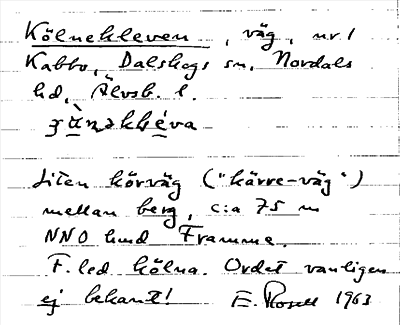 Kölnekleven, väg, nr 1
Kabbo, Dalskogs sn, Nordals
hd, Älvsb. l.

Liten körväg ("kärre-väg")
mellan berg, c:a 75 m
NNO Framme.
F. led kölna. Ordet vanligen
ej bekant! E. Rosell 1963